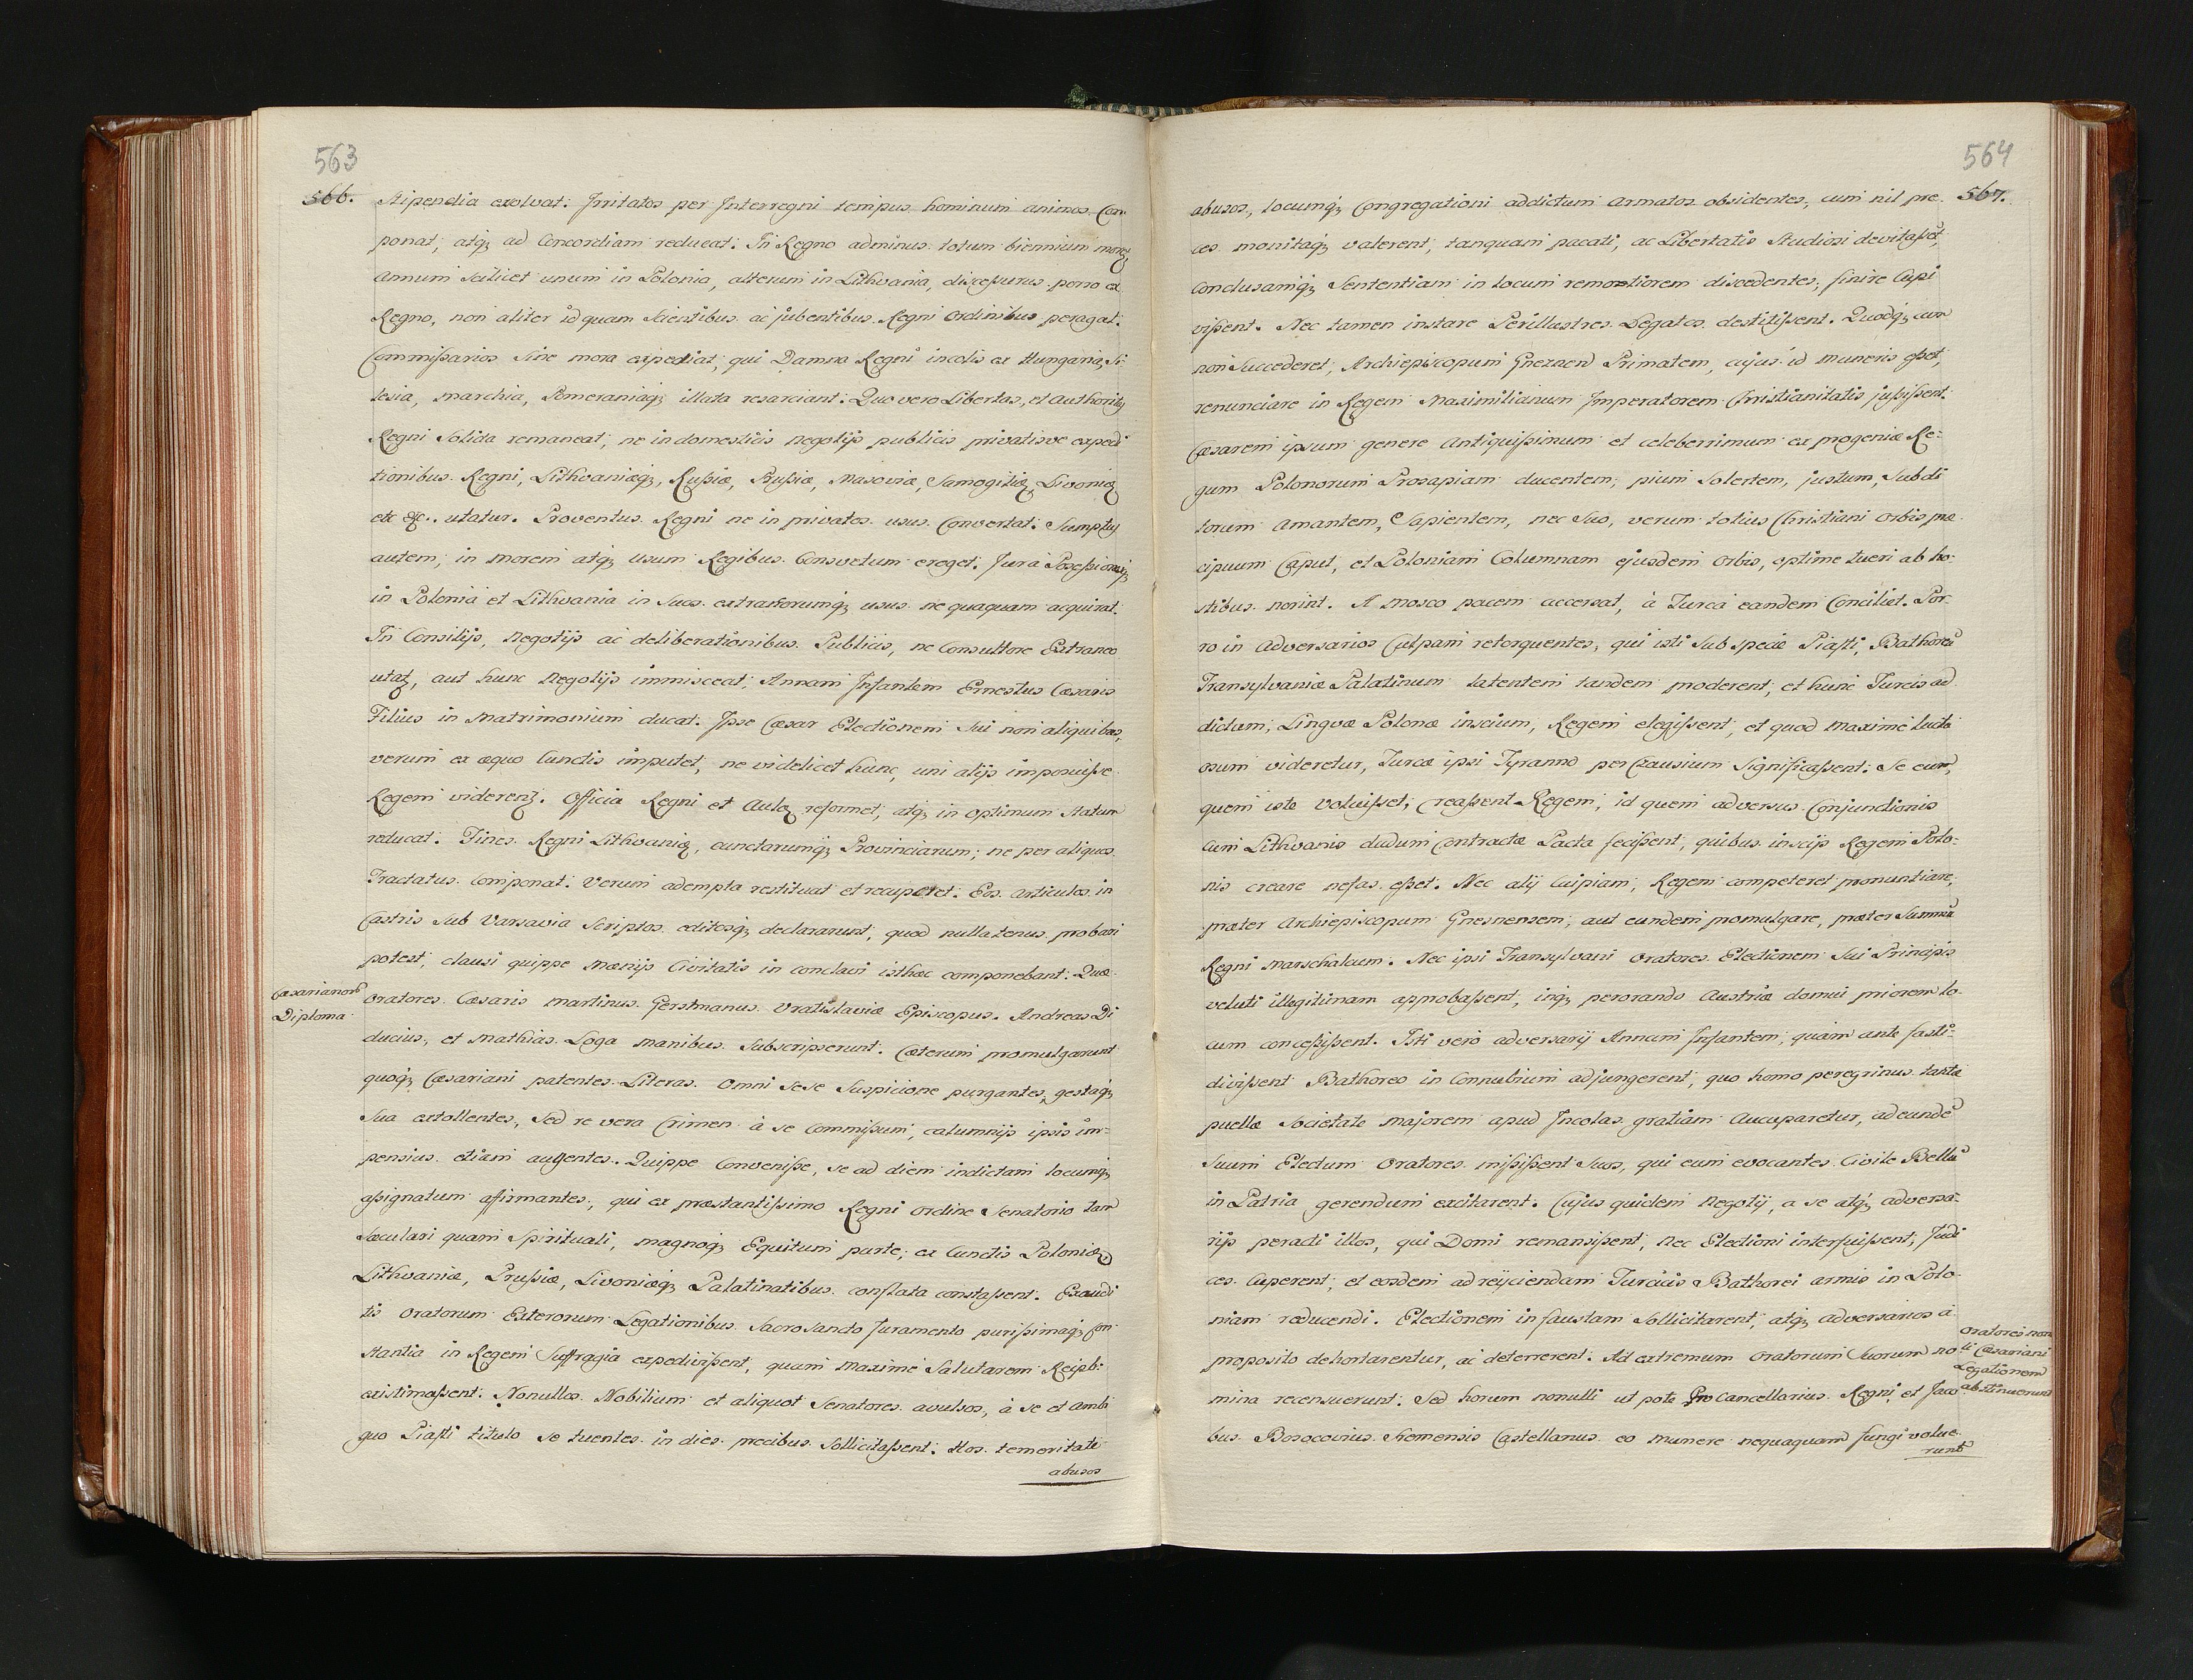 563
566.
Stipendia exolvat. Irritatos per Interregni tempus hominum animos Com
ponat, atq; ad Concordiam reducat. In Regno adminus totum biennium
Annum scilicet unum in Polonia, alterum in Lithvania, discessurus porro ex
Regno, non aliter id quam Scientibus ac jubentibus Regni Ordinibus peragat.
Commissarios Sine mora expediat, qui Damna Regni incolis ex Hungaria, Si-
lesia, Marchia, Pomeraniaq; illata resarciant. Quo vero Libertas, et Authoritas
Regni Solida remaneat, ne in domesticis negotijs publicis privatisve expedi
tionibus Regni, Lithvaniæq;, Russiæ, Prussiæ, Masoviæ, Samogitiæ, Livoniæ
etc &c. utatur. Proventus Regni ne in privatos usus Convertat. Sumptus
autem, in morem atq; usum Regibus Consvetum eroget. Jura Possessionesq;
in Polonia et Lithvania in Suos extraneorumq; usus ne quaquam acquirat.
In Consilijs, Negotijs ac deliberationibus Publicis, ne Consultore Extraneo
utatur, aut hunc Negotijs immisceat, Annam Infantem Ernestus Cæsaris
Filius in Matrimonium ducat. Ipse Cæsar Electionem Sui non aliquibus,
verum ex æquo Cunctis imputet, ne videlicet hunc, uni alijs imposuisse
Regem viderent. Officia Regni et Aulæ reformet, atq; in optimum Statum
reducat. Fines Regni Lithvaniæ, cunctarumq; Provinciarum, ne per aliquos
Tractatus Componat. Verum adempta restituat et recuperet. Eos Articulos in
Castris sub Varsavia Scriptos editosq; declararunt, quod nullatenus probari
potest, clausi quippe Mænijs Civitatis in conclavi isthæc componebant. Quæ
Cæsarianorũ
Diploma
Oratores Cæsaris Martinus Gerstmanus Vratislaviæ Episcopus. Andreas Di
ducius, et Mathias Loga Manibus Subscripserunt. Cæterum promulgarunt
quoq; Cæsariani patentes Literas. Omni sese Suspicione purgantes, gestaq;
Sua extollentes, Sed re vera Crimen à se Commissum, calumnijs ipsis im-
pensius etiam augentes. Quippe Convenisse, se ad diem indictam locumq;
assignatum affirmantes, qui ex præstantissimo Regni Ordine Senatorio tam
Sæculari quam Spirituali, magnoq; Equitum parte, ex Cunctis Poloniæ,
Lithvaniæ, Prussiæ, Livoniæq; Palatinatibus conflata constassent. Exaudi
tis Oratorum Exterorum Legationibus Sacrosancto Juramento purissimaq; Con
stantia in Regem Suffragia expedivissent, quam Maxime Salutarem Reipb:
existimassent. Nonullos Nobilium et aliquot Senatores avulsos, à se et Ambi
guo Piasti titulo se tuentes in dies precibus Sollicitassent. Hos temeritate
abusos
564
567.
abusos, locumq; Congregationi addictum Armatos obsidentes, cum nil pre
ces monitaq; valerent, tanquam pacati, ac Libertatis Studiosi devitasset,
Conclusamq; Sententiam in locum remotiorem discedentes, finire Cupi
vissent. Nec tamen instare Perillustres Legatos destitissent. Quodq; cum
non Succederet, Archiepiscopum Gneznen Primatem, cujus id Muneris esset,
renunciare in Regem Maximilianum Imperatorem Christianitatis jussissent.
Cæsarem ipsum genere Antiquissimum et celeberrimum ex progeniæ Re-
gum Polonorum Prosapiam ducentem, pium Solertem, justum, Subdi
torum Amantem, Sapientem, nec Suo, verum totius Christiani Orbis præ
cipuum Caput, et Poloniam Columnam ejusdem Orbis, optime tueri ab ho-
stibus norint. A Mosco pacem accersat, à Turca eandem Conciliet. Por-
ro in Adversarios Culpam retorquentes, qui isti Sub specie Piasti, Bathoreũ
Transylvaniæ Palatinum latentem tandem proderent, et hunc Turcis ad
dictum, Lingvæ Polonæ inscium, Regem elegissent, et quod Maxime lucto
osum videretur, Turcæ ipsi Tyranno per Czausium Significassent. Se eum,
quem iste Voluisset, Creassent Regem, id quem adversus Conjunctionis
Cum Lithvanis dudum Contractæ Pacta fecissent, quibus inscijs Regem Polo-
nis creare nefas esset. Nec alij Cuipiam, Regem competeret pronuntiare,
præter Archiepiscopum Gnesnensem, aut eundem promulgare, præter Summũ
Regni Marschalcum. Nec ipsi Transylvani Oratores Electionem Sui Principis
veluti illegitimam approbassent, inq; perorando Austriæ domui priorem lo-
cum concessissent. Isti vero adversarij Annam Infantem, quam ante fasti-
divissent Bathoreo in Connubium adjungerent, quo homo peregrinus tantæ
puellæ Societate majorem apud Incolas gratiam Aucuparetur, ad eundẽ
Suum Electum Oratores misissent Suos, qui eum evocantes Civile Bellũ
in Patria gerendum excitarent. Cujus quidem Negotij, a se atq; adversa-
rijs peracti illos, qui Domi remansissent, nec Electioni interfuissent, Judi
ces Cuperent, et eosdem ad reijciendam Turcicis Bathorei armis in Polo-
niam reducendi. Electionem infaustam Sollicitarent, atq; adversarios à
proposito dehortarentur, ac deterrerent. Ad extremum Oratorum Suorum no
Oratores non
li Cæsariani
Legationem
abstinuerunt
mina recensuerunt. Sed horum nonulli ut pote Pro Cancellarius Regni, et Jaco
bus Bosocovius Sremensis Castellanus eo Munere nequaquam fungi volue
runt